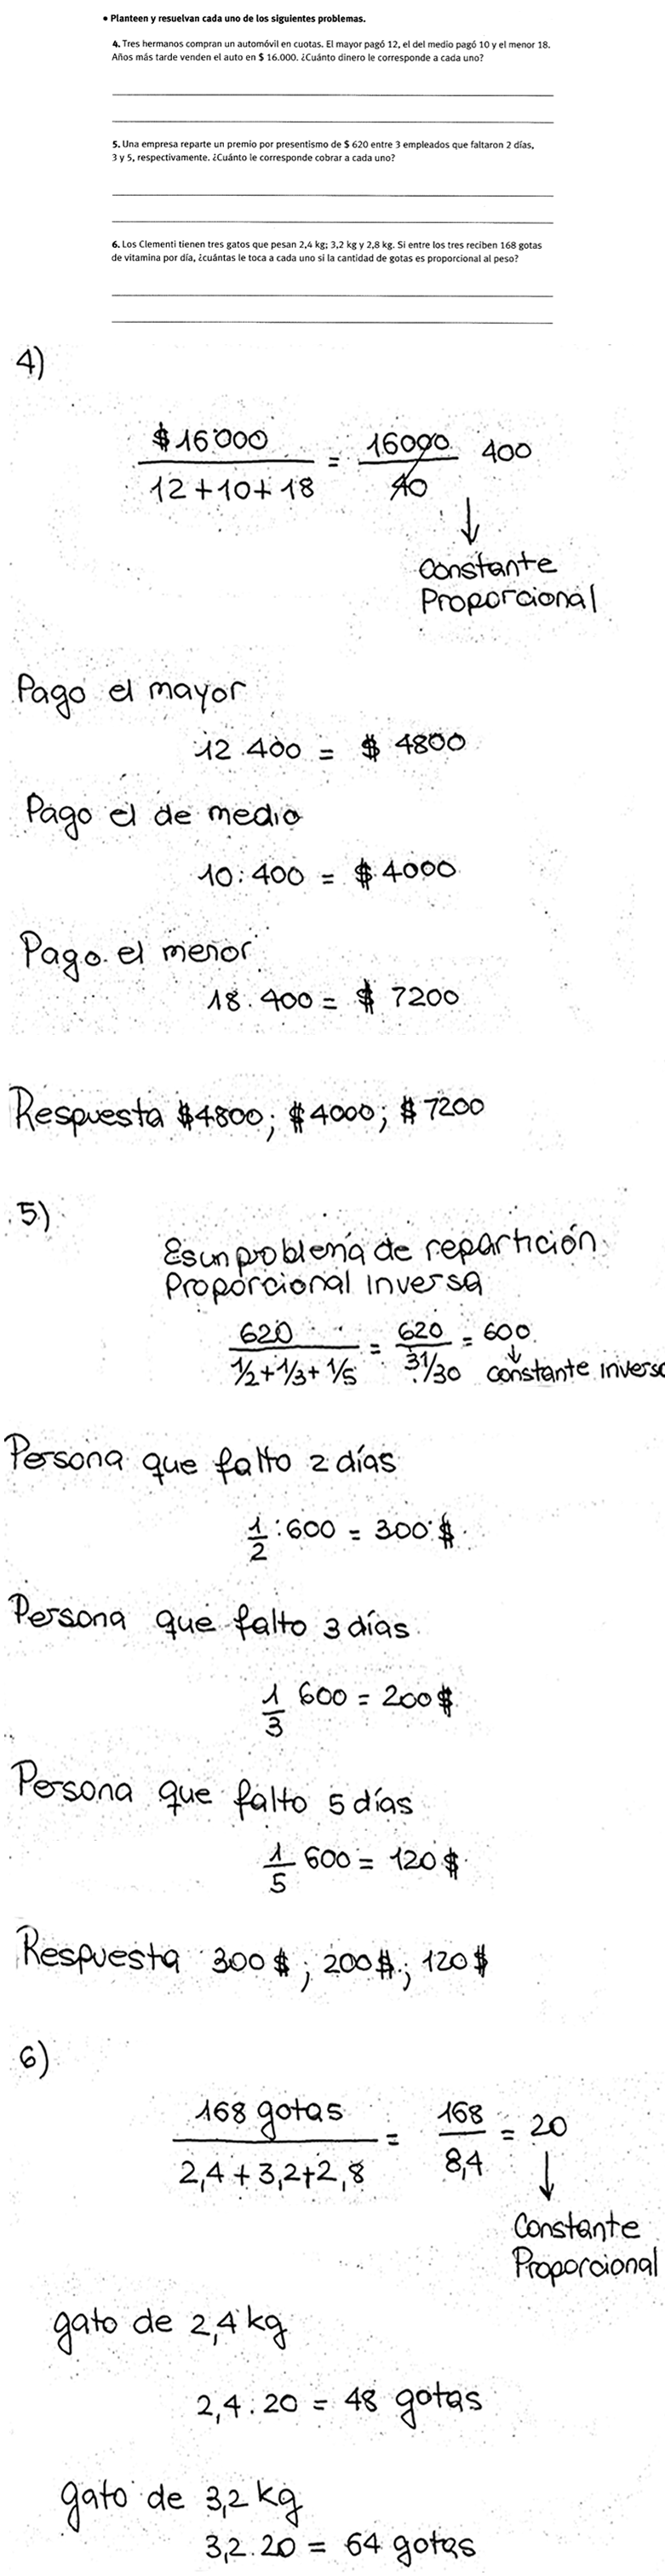 • Planteen y resuelvan cada uno de los siguientes problemas.
4. Tres hermanos compran un automóvil en cuotas. El mayor pagó 12, el del medio pagó 10 y el menor 18.
Años más tarde venden el auto en $ 16.000. ¿Cuánto dinero le corresponde a cada uno?
5. Una empresa reparte un premio por presentismo de $ 620 entre 3 empleados que faltaron 2 días,
3 y 5, respectivamente. ¿Cuánto le corresponde cobrar a cada uno?
6. Los Clementi tienen tres gatos que pesan 2,4 kg; 3,2 kg y 2,8 kg. Si entre los tres reciben 168 gotas
de vitamina por día, ¿cuántas le toca a cada uno si la cantidad de gotas es proporcional al peso?
4)
$16000 / 12+10+18 = 16000 / 40 400
↓
Constante
Proporcional
Pago el mayor
12.400 = $ 4800
Pago el de medio
10.400 = $ 4000
Pago el menor
18.400 = $ 7200
Respuesta $4800; $4000; $7200
5)
Es un problema de repartición
Proporcional Inversa
620 / 1/2+1/3+1/5 = 620 / 31/30 = 600
↓
constante inversa
Persona que falto 2 días
1/2 . 600 = 300 $
Persona que falto 3 días
1/3 600 = 200 $
Persona que falto 5 días
1/5 600 = 120 $
Respuesta 300 $; 200 $; 120 $
6)
168 gotas / 2,4 + 3,2 + 2,8 = 168 / 8,4 = 20
↓
Constante
Proporcional
gato de 2,4 kg
2,4 . 20 = 48 gotas
gato de 3,2 kg
3,2 . 20 = 64 gotas